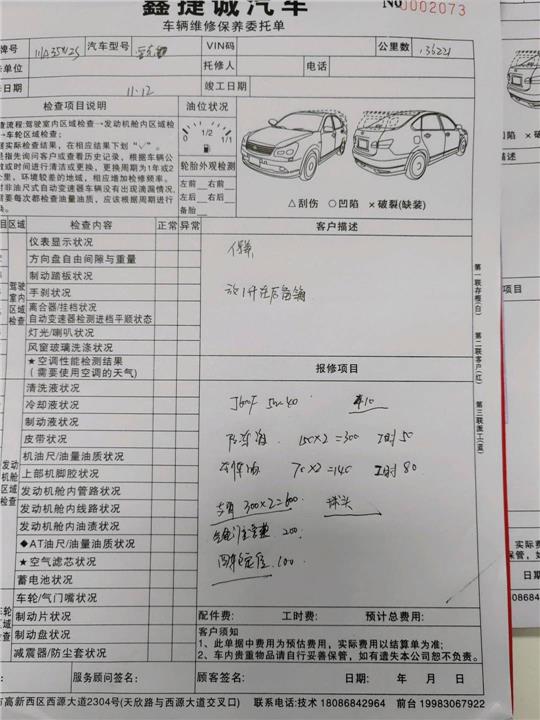 鑫捷诚汽车
№0002073
车辆维修保养委托单
牌号 汽车型号 VIN码 公里数 136221
单位 托修人 电话
日期 11.12 竣工日期
检查项目说明
查流程:驾驶室内区域检查→发动机舱内区域检
→车轮区域检查;
据实际检查结果,在相应结果下划“√”。
是指先询问客户或查看历史记录,根据车辆公
数或时间进行清洁或更换,更换周期为1年或2
公里,环境较差的地域,相应增加检修频率。
对非油尺式自动变速器车辆没有出现滴漏情况,
需要每次都检查油量油质,应该根据周期进行
换。
油位状况
0 1/2 1/1
轮胎外观检测
左前 右前
左后 右后
备胎
△刮伤 ○凹陷 ×破裂(缺装)
目区域 检查内容 正常 异常
驾驶室内区域检查
仪表显示状况
方向盘自由间隙与重量
制动踏板状况
手刹状况
离合器/挂档状况
自动变速器检测进档平顺状态
灯光/喇叭状况
风窗玻璃洗涤状况
★空调性能检测结果
(需要使用空调的天气)
发动机舱区域检查
清洗液状况
冷却液状况
制动液状况
皮带状况
机油尺/油量油质状况
上部机脚胶状况
发动机舱内管路状况
发动机舱内线路状况
发动机舱内油渍状况
◆AT油尺/油量油质状况
★空气滤芯状况
蓄电池状况
车轮区域检查
车轮/气门嘴状况
制动片状况
制动盘状况
减震器/防尘套状况
客户描述
保养
报修项目
150×2=300 工时50
70×2=140 工时80
300×2=600 球头
200
四轮定位 100
配件费: 工时费: 预计总费用:
客户须知
1、此单据中费用为预估费用,实际费用以结算单为准;
2、车内贵重物品请自行妥善保管,如有遗失本公司恕不负责。
服务顾问签名: 顾客签名: 日期: 年 月 日
市高新西区西源大道2304号(天欣路与西源大道交叉口) 联系电话:技术 18086842964 前台 19983067922
第一联存根(白)
第二联客户(红)
第三联派工(蓝)
项目
○凹陷 ×
述
实际费用以
保管,如
日期
8086842